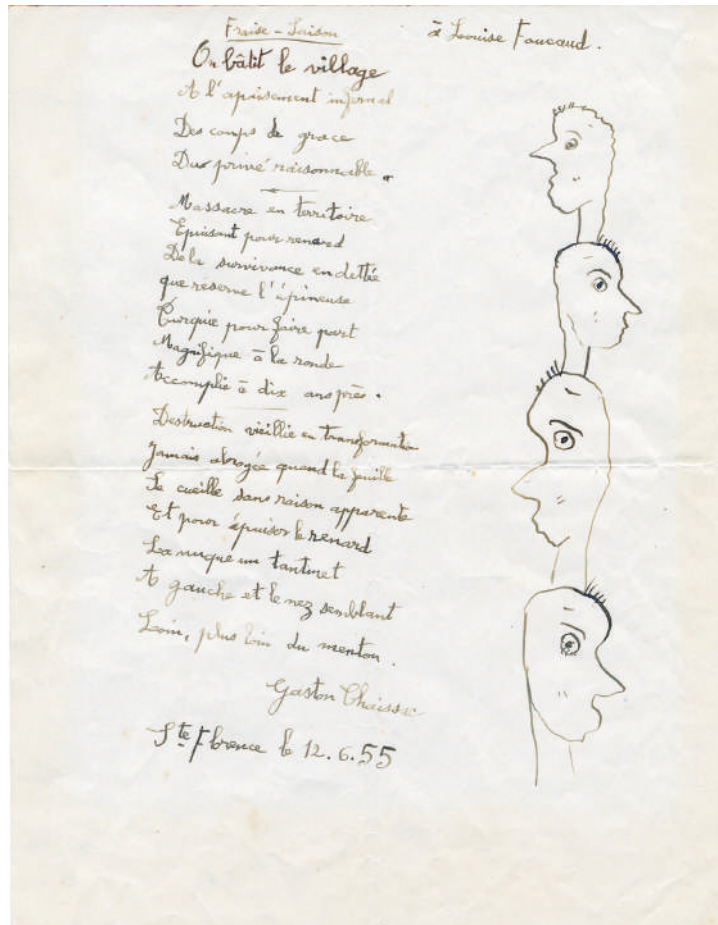 Fraise - Saison
à Louise Foucaud.
On bâtit le village
A l'apaisement infernal
Des coups de grace
Du privé raisonnable.
Massacre en territoire
Epuisant pour renard
De la survivance endettée
que réserve l'épineuse
Turquie pour faire part
Magnifique à la ronde
Accomplie à dix ans près.
Destruction vieillie en transformation
Jamais abrogée quand la feuille
Se cueille sans raison apparente
Et pour épuiser le renard
La nuque un tantinet
A gauche et le nez semblant
Loin, plus loin du menton.
Gaston Chaissac
Ste Florence le 12.6.55